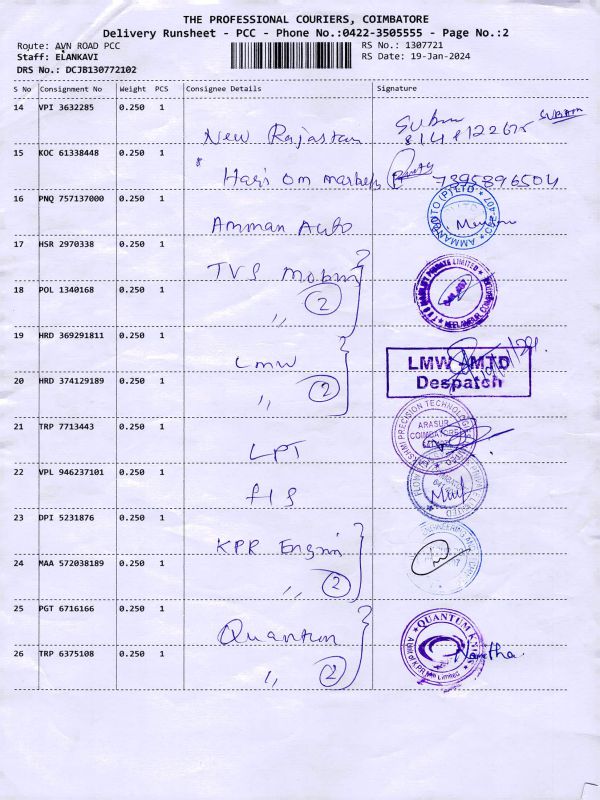 THE PROFESSIONAL COURIERS, COIMBATORE
Delivery Runsheet - PCC - Phone No.:0422-3505555 - Page No.:2
Route: AVN ROAD PCC
RS No.: 1307721
Staff: ELANKAVI
RS Date: 19-Jan-2024
DRS No.: DCJB130772102
S No Consignment No Weight PCS Consignee Details Signature
14 VPI 3632285 0.250 1
New Rajastan
15 KOC 61338448 0.250 1
Hari Om 7395896504
16 PNQ 757137000 0.250 1
Amman Auto
17 HSR 2970338 0.250 1
TVS
18 POL 1340168 0.250 1
,, 2
19 HRD 369291811 0.250 1
LMW
LMW - MTD
Despatch
20 HRD 374129189 0.250 1
,, 2
21 TRP 7713443 0.250 1
LPT
ARASUR
22 VPL 946237101 0.250 1
FIS
23 DPI 5231876 0.250 1
KPR Engin
24 MAA 572038189 0.250 1
,, 2
25 PGT 6716166 0.250 1
Quantum
QUANTUM KNITS
26 TRP 6375108 0.250 1
,, 2